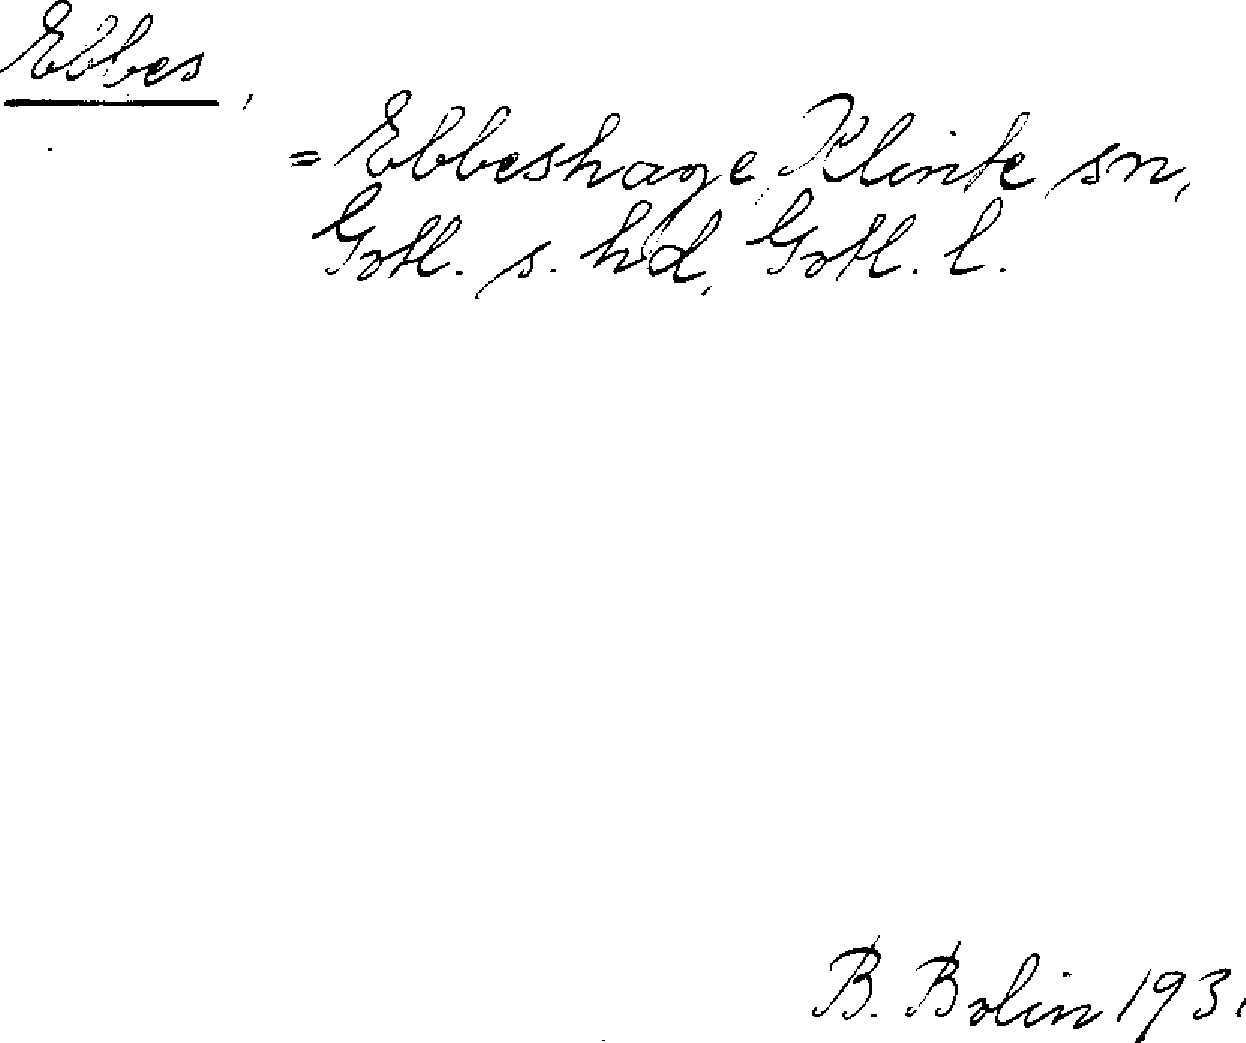 Ebbes,
= Ebbeshage, Klinte sn,
Gotl. s. hd, Gotl. l.
B. Bolin 193